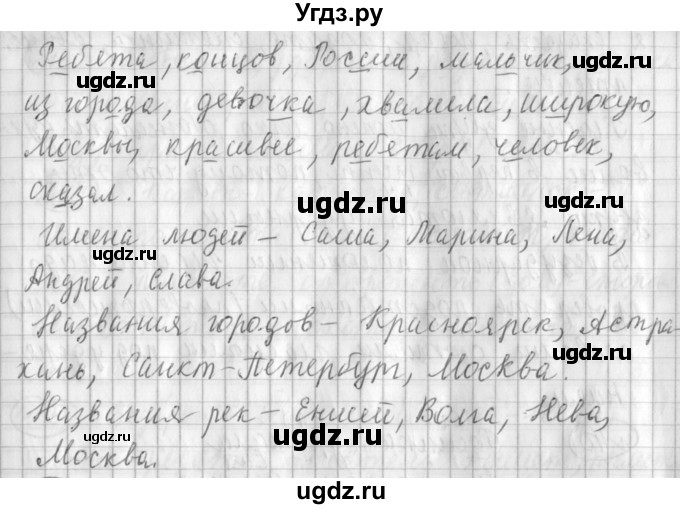 Угдз.ру
Ребята, концов, России, мальчик,
из города, девочка, хвалила, широкую,
Москвы, красивее, ребятам, человек,
сказал.
Имена людей – Саша, Марина, Лена,
Андрей, Слава.
Названия городов – Красноярск, Астра-
хань, Санкт-Петербург, Москва.
Названия рек – Енисей, Волга, Нева,
Москва.
ugdz.ru
ugdz.ru
ugdz.ru
ugdz.ru
ugdz.ru
ugdz.ru
ugdz.ru
ugdz.ru
ugdz.ru
ugdz.ru